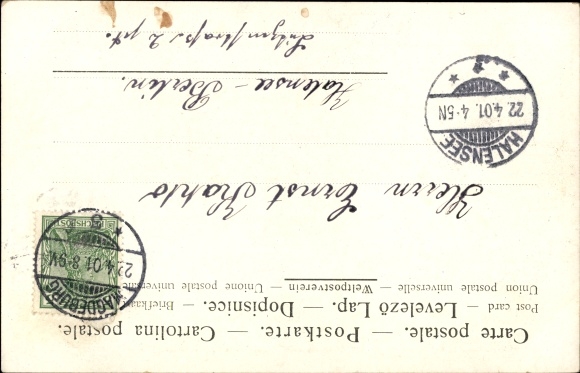 Carte postale. — Postkarte. — Cartolina postale.
Post card — Levelező Lap. — Dopisnice. — Briefkaart
Union postale universelle — Weltpostverein — Unione postale universale
REICHSPOST
MAGDEBURG
22.4.01.8-9V.
Herrn Ernst
Halensee - Berlin.
2 pt.
HALENSEE
22.4.01. 4-5N